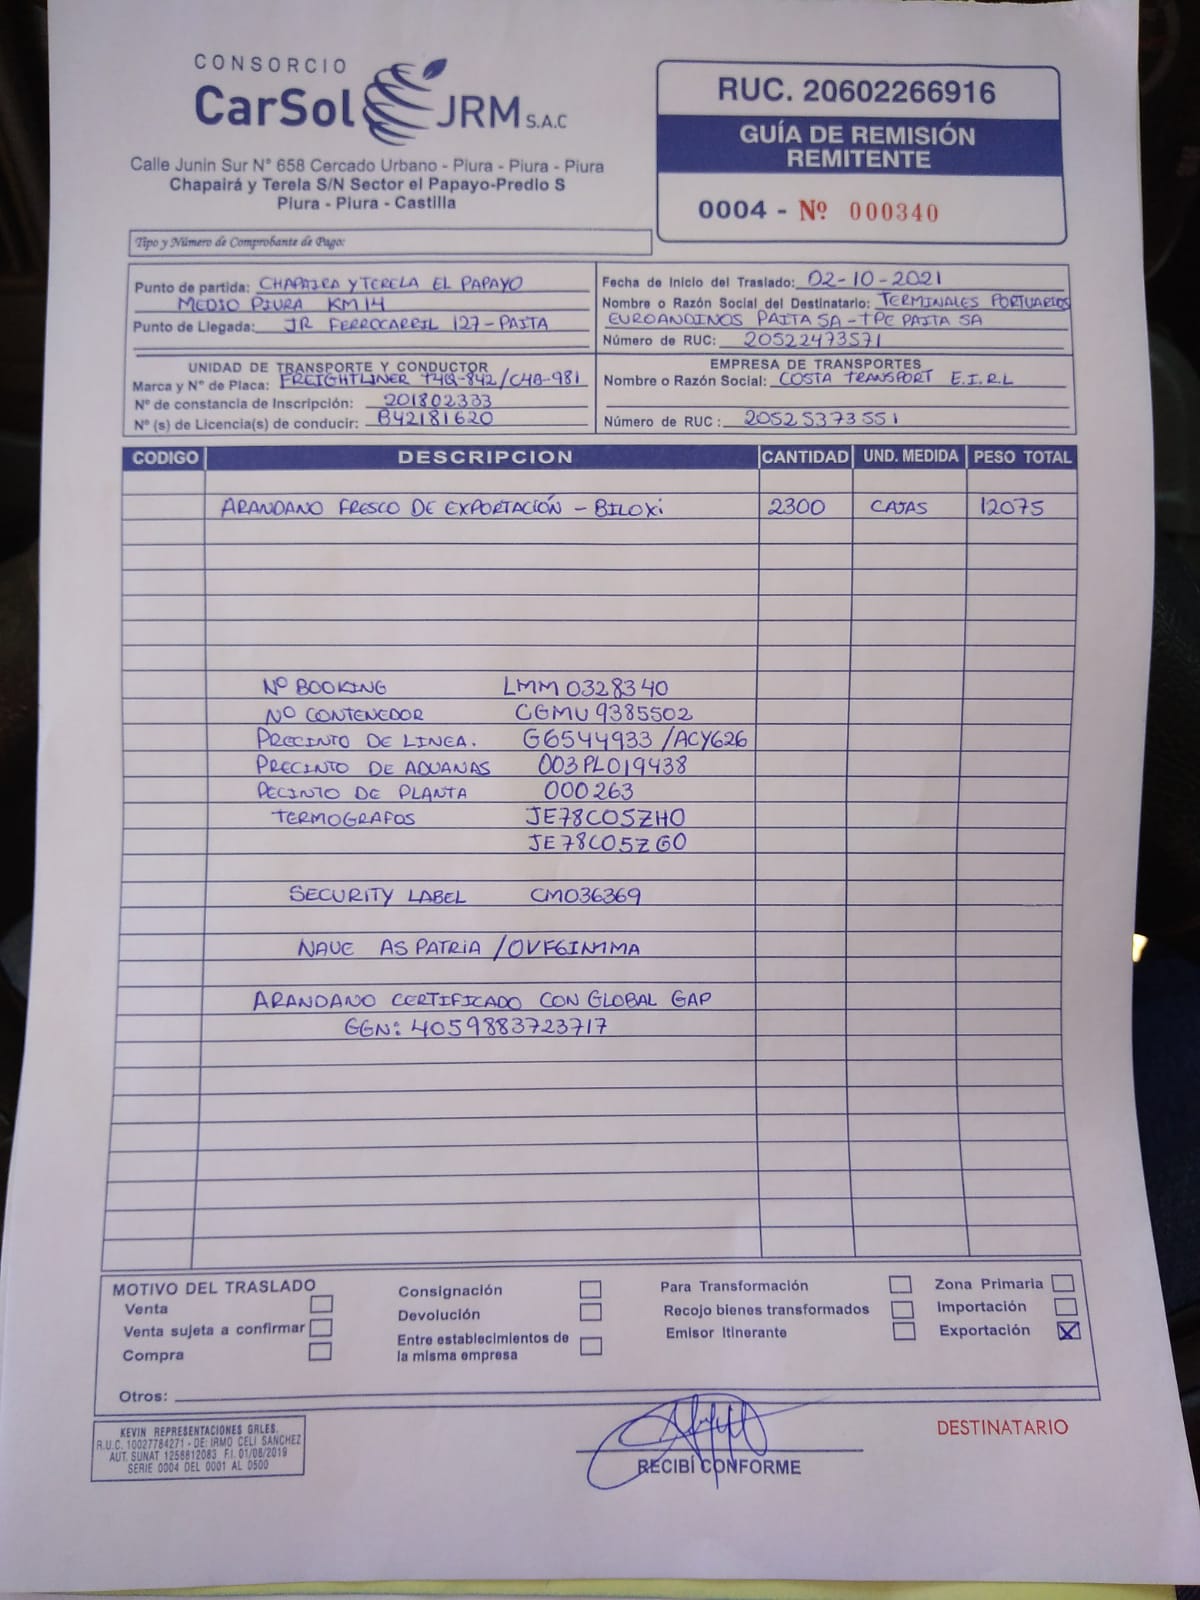 CONSORCIO
CarSol JRM S.A.C
Calle Junin Sur N° 658 Cercado Urbano - Piura - Piura - Piura
Chapairá y Terela S/N Sector el Papayo-Predio S
Piura - Piura - Castilla
RUC. 20602266916
GUÍA DE REMISIÓN
REMITENTE
0004 - Nº 000340
Tipo y Número de Comprobante de Pago:
Punto de partida: CHAPAIRA Y TERELA EL PAPAYO
MEDIO PIURA KM14
Punto de Llegada: JR FERROCARRIL 127-PAITA
Fecha de Inicio del Traslado: 02-10-2021
Nombre o Razón Social del Destinatario: TERMINALES PORTUARIOS
EUROANDINOS PAITA SA-TPE PAITA SA
Número de RUC: 20522473571
UNIDAD DE TRANSPORTE Y CONDUCTOR
Marca y Nº de Placa: FREIGHTLINER T4Q-842/C4B-981
Nº de constancia de Inscripción: 201802333
Nº (s) de Licencia(s) de conducir: B42181620
EMPRESA DE TRANSPORTES
Nombre o Razón Social: COSTA TRANSPORT E.I.R.L
Número de RUC: 20525373551
CODIGO DESCRIPCION CANTIDAD UND. MEDIDA PESO TOTAL
ARANDANO FRESCO DE EXPORTACIÓN - BILOXI 2300 CAJAS 12075
Nº BOOKING LMM0328340
NO CONTENEDOR CGMU 9385502
PRECINTO DE LINEA. G6544933 /ACY626
PRECINTO DE ADUANAS 003PL019438
PECINTO DE PLANTA 000263
TERMOGRAFOS JE78C05ZH0
JE78C05ZG0
SECURITY LABEL CM036369
NAVE AS PATRIA /OVF6IN1MA
ARANDANO CERTIFICADO CON GLOBAL GAP
GGN: 4059883723717
MOTIVO DEL TRASLADO
Venta
Venta sujeta a confirmar
Compra
Consignación
Devolución
Entre establecimientos de
la misma empresa
Para Transformación
Recojo bienes transformados
Emisor Itinerante
Zona Primaria
Importación
Exportación X
Otros:
KEVIN REPRESENTACIONES GRLES.
R.U.C. 10027784271 - DE: IRMO CELI SANCHEZ
AUT. SUNAT 1258812083 F.I. 01/08/2019
SERIE 0004 DEL 0001 AL 0500
RECIBÍ CONFORME
DESTINATARIO